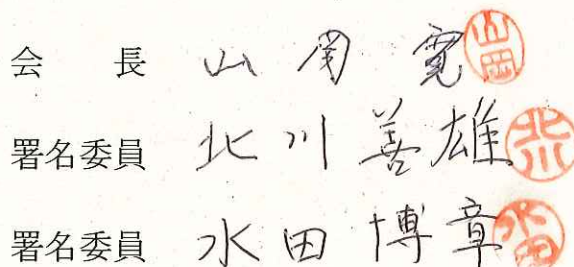 会　　長　山岡　寛　山岡
署名委員　北川善雄　北川
署名委員　水田博章　水田